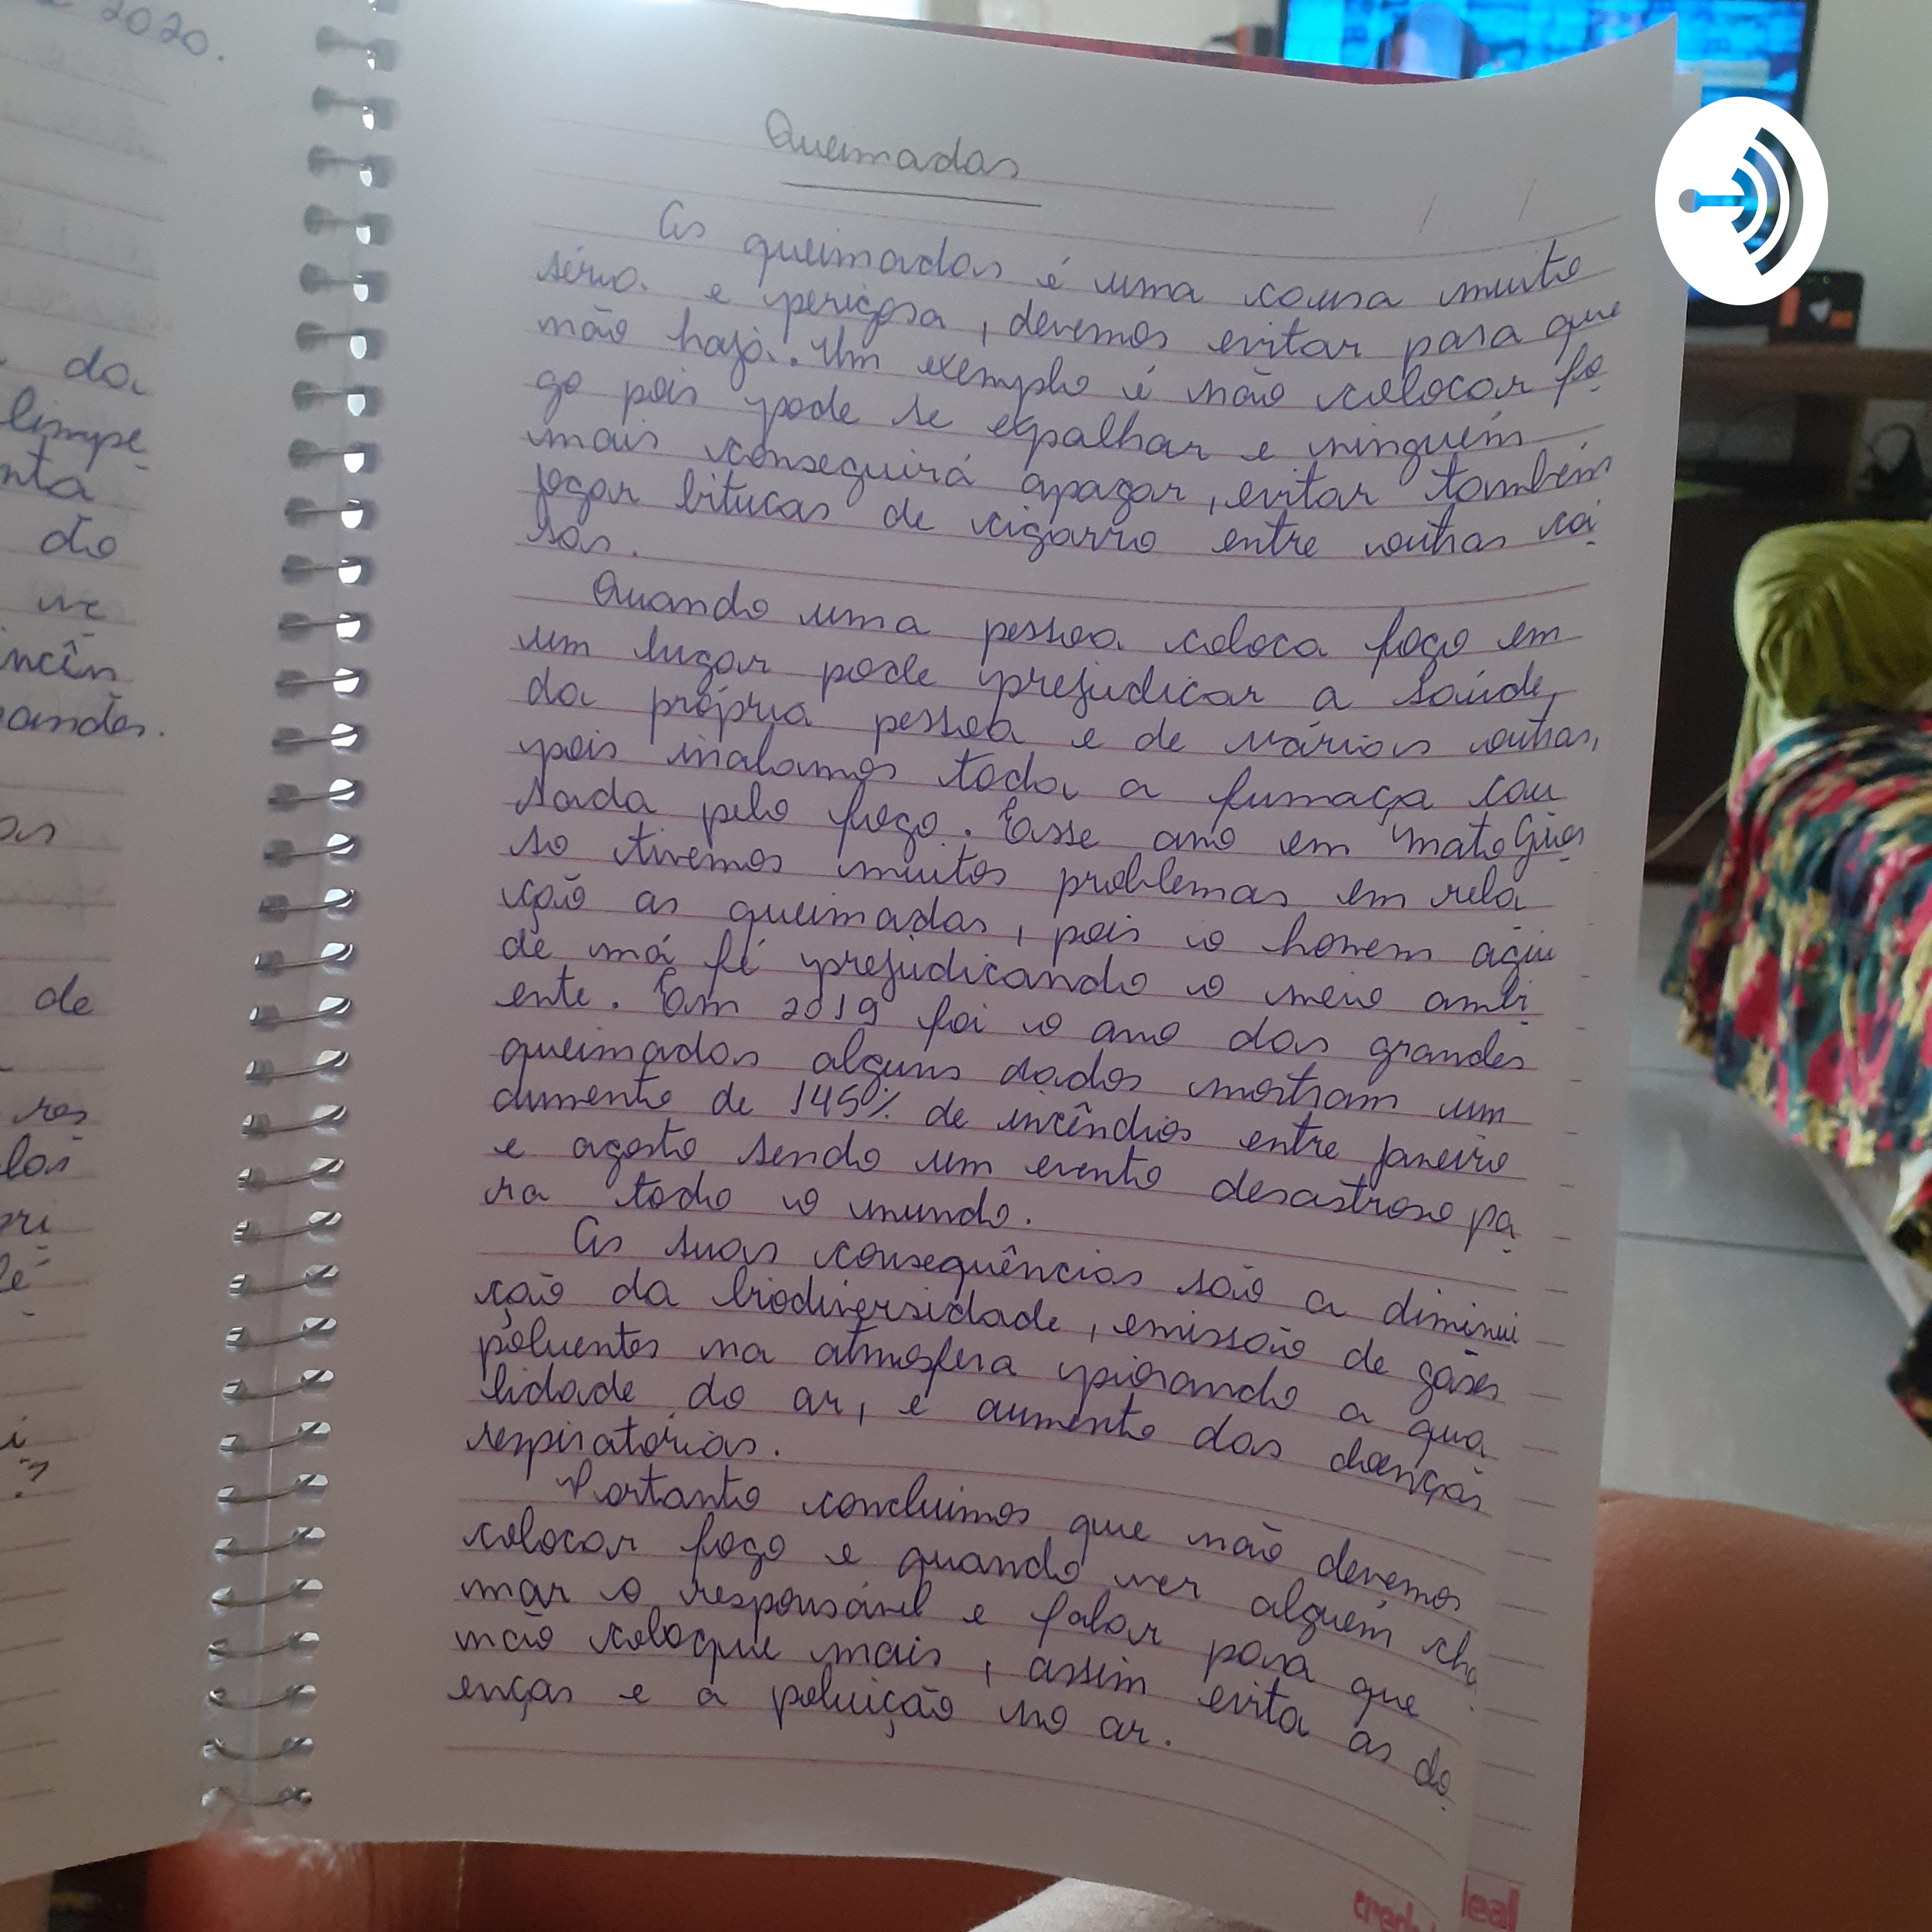 2020.
da
limpe
nta
do
ve
incên
andes.
as
de
res
los
pri
Queimadas
As queimadas é uma cousa muito
séria. e perigosa, devemos evitar para que
não haja. Um exemplo é não colocar fo
go pois pode se espalhar e ninguém
mais conseguirá apagar, evitar também
jogar bitucas de cigarro entre outras coi
sas.
Quando uma pessoa coloca fogo em
um lugar pode prejudicar a saúde,
da própria pessoa e de várias outras,
pois inalamos toda a fumaça cau
sada pelo fogo. Esse ano em Mato Gros
so tivemos muitos problemas em rela
ção as queimadas, pois o homem agiu
de má fé prejudicando o meio ambi
ente. Em 2019 foi o ano das grandes
queimadas alguns dados mostram um
aumento de 145% de incêndios entre janeiro
e agosto sendo um evento desastroso pa
ra todo o mundo.
As suas consequências são a diminui
ção da biodiversidade, emissão de gases
poluentes na atmosfera piorando a qua
lidade do ar, e aumento das doenças
respiratórias.
Portanto concluimos que não devemos
colocar fogo e quando ver alguém cha
mar o responsável e falar para que
não coloque mais, assim evita as do
enças e a poluição no ar.
cred
leal